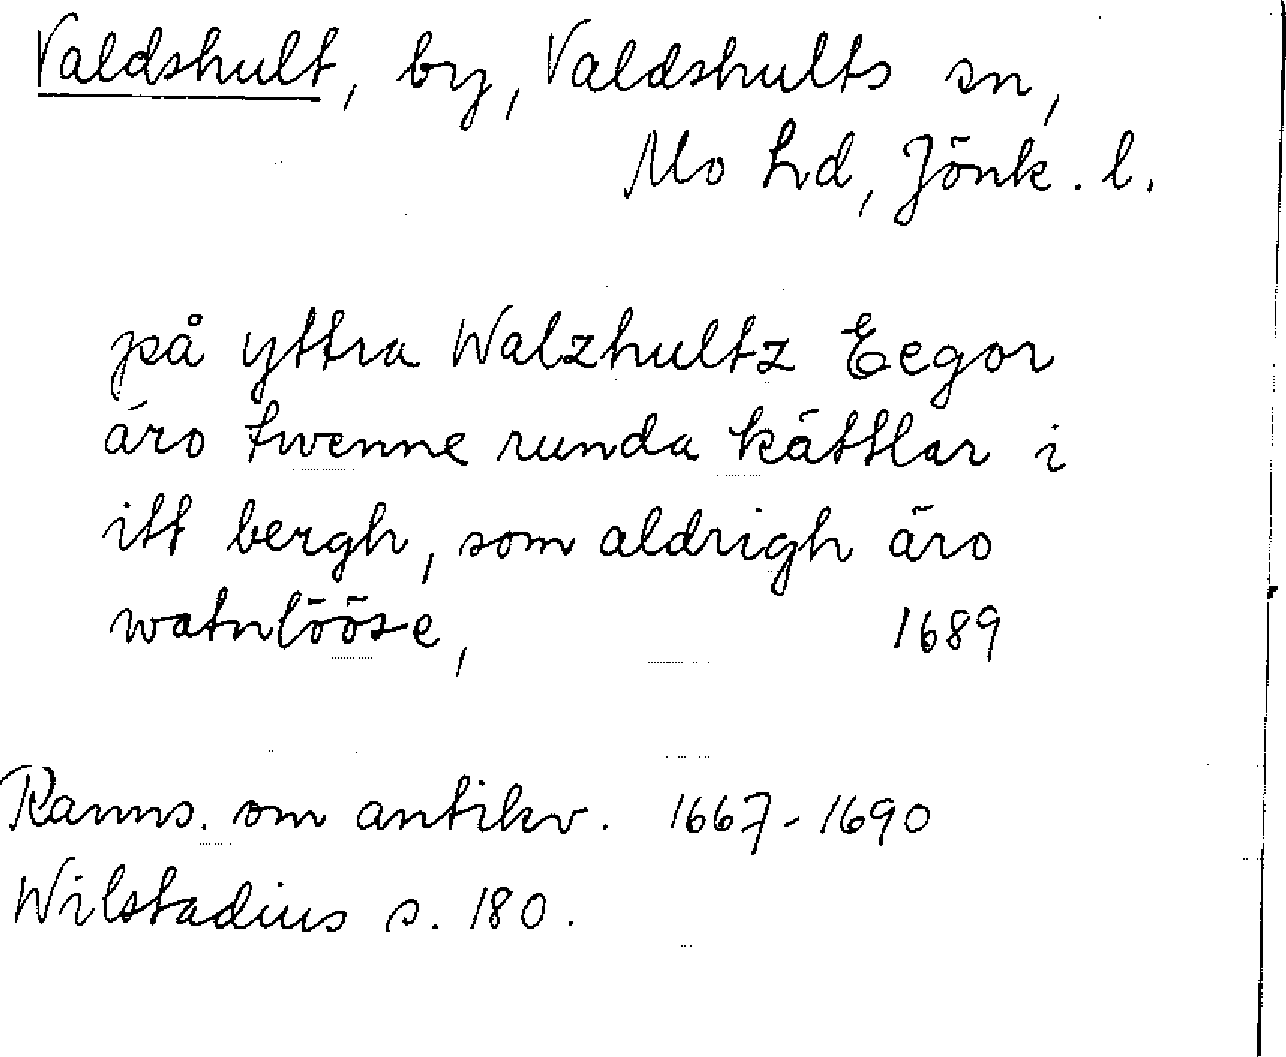 Valdshult, by, Valdshults sn,
Mo hd, Jönk. l.
på yttra Walzhultz Eegor
äro twenne runda kättlar i
itt bergh, som aldrigh äro
watnlööse, 1689
Ranns. om antikv. 1667-1690
Wilstadius s. 180.